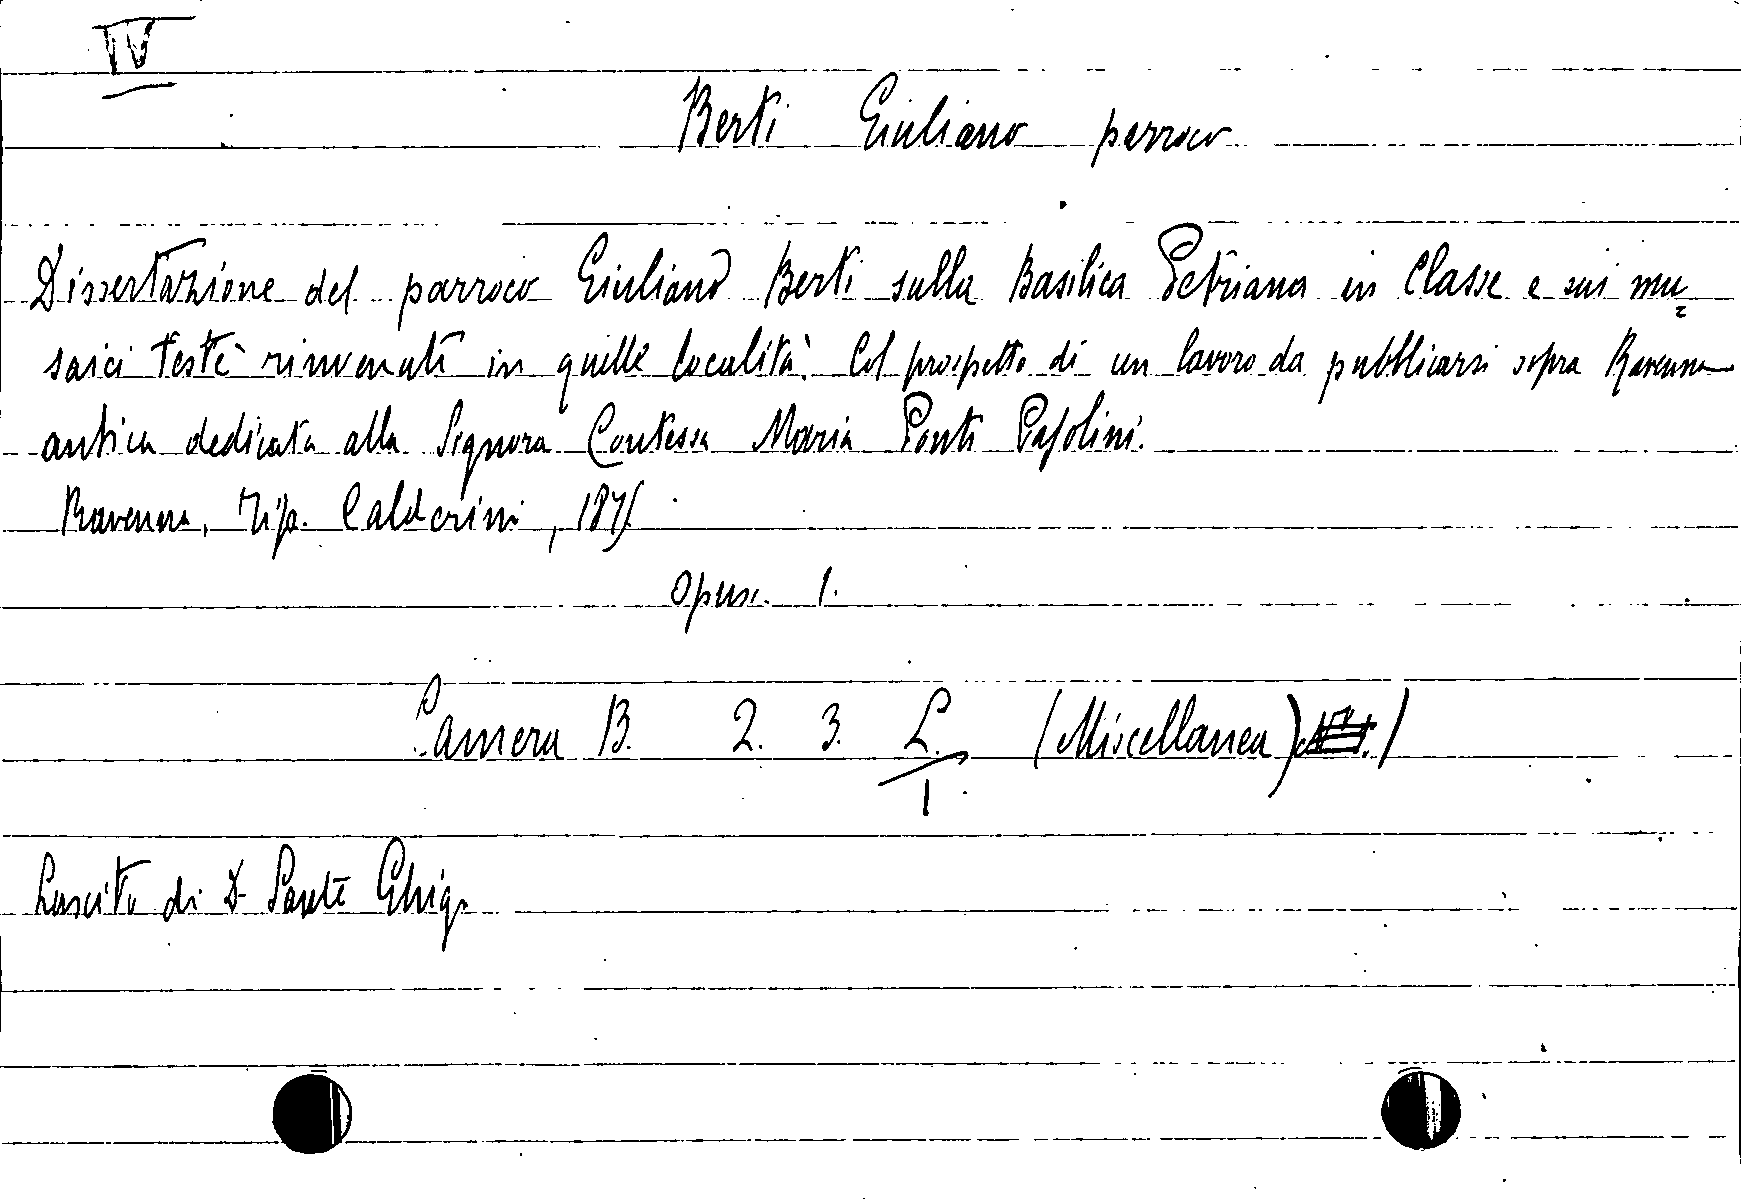 IV
Berti Giuliano parroco
Dissertazione del parroco Giuliano Berti sulla Basilica Petriana in Classe e sui mu=
saici testè rinvenuti in quelle località. Col prospetto di un lavoro da pubblicarsi sopra Ravenna
antica dedicata alla Signora Contessa Maria Ponti Pasolini.
Ravenna, Tip. Calderini,
Opusc. 1.
Camera B. 2. 3. L. (Miscellanea)
1.
Lascito di D. Sante Ghigi